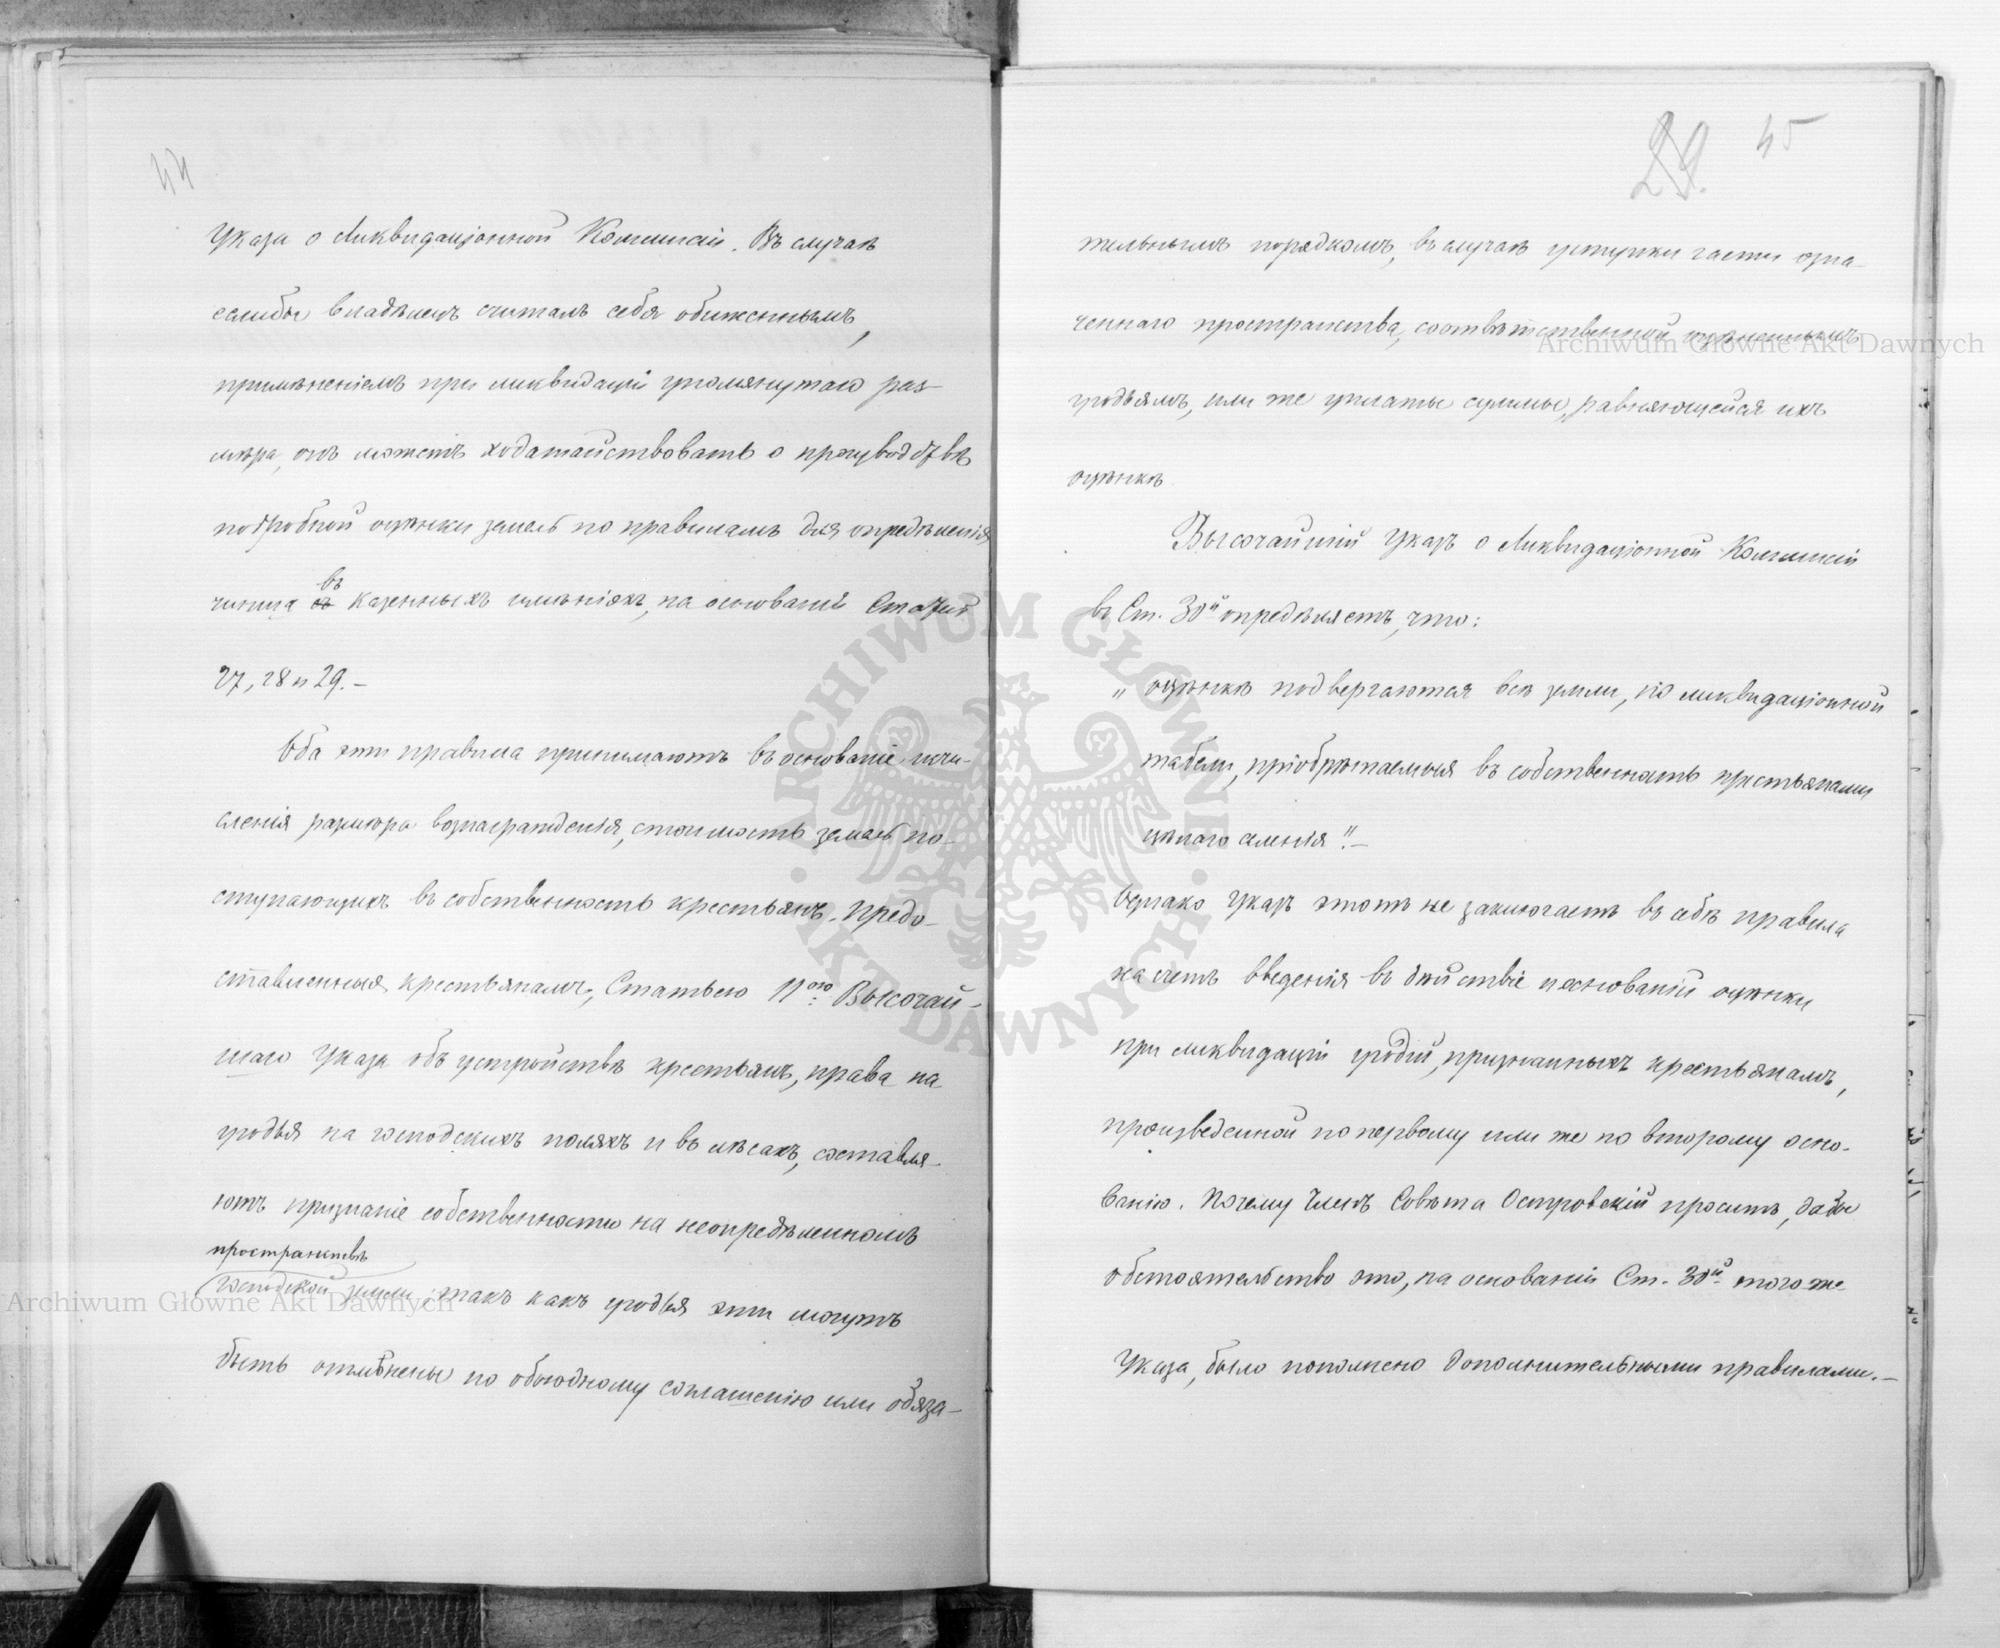 44
Указа о Ликвидаціонной Коммисіи. Въ случаѣ
еслибы владѣлецъ считалъ себя обиженнымъ,
примѣненіемъ при ликвидаціи упомянутаго раз-
мѣра, онъ можетъ ходатайствовать о производствѣ
подробной оцѣнки земель по правиламъ для опредѣленія
чинша въ казенныхъ имѣніяхъ, на основаніи Статей
27, 28 и 29.-
Оба эти правила принимаютъ въ основаніе исчи-
сленія размѣра вознагражденія, стоимость земель по-
ступающихъ въ собственность крестьянъ. Предо-
ставленныя крестьянамъ, Статьею 11ою Высочай-
шаго Указа объ устройствѣ крестьянъ, права на
угодья на господскихъ поляхъ и въ лѣсахъ, составля-
ютъ признаніе собственности на неопредѣленномъ
пространствѣ
господской земли, такъ какъ угодья эти могутъ
быть отмѣнены по обоюдному соглашенію или обяза-
29. 45
тельнымъ порядкомъ, въ случаѣ уступки части озна-
ченнаго пространства, соотвѣтственной оцѣненнымъ
угодьямъ, или же уплаты суммы, равняющейся ихъ
оцѣнкѣ
Высочайшій Указъ о Ликвидаціонной Коммисіи
въ Ст. 30й опредѣляетъ, что:
„ оцѣнкѣ подвергаются всѣ земли, по ликвидаціонной
табели, пріобрѣтаемыя въ собственность крестьянами
цѣлаго селенія".-
Однако Указъ этотъ не заключаетъ въ себѣ правила
на счетъ введенія въ дѣйствіе основаній оцѣнки
при ликвидаціи угодій, признанныхъ крестьянамъ,
произведенной по первому или же по второму осно-
ванію. Почему Членъ Совѣта Островскій проситъ, дабы
обстоятельство это, на основаніи Ст. 30й того же
Указа, было пополнено дополнительными правилами.-
Archiwum Główne Akt Dawnych
Archiwum Główne Akt Dawnych
ARCHIWUM GŁÓWNE · AKT DAWNYCH ·